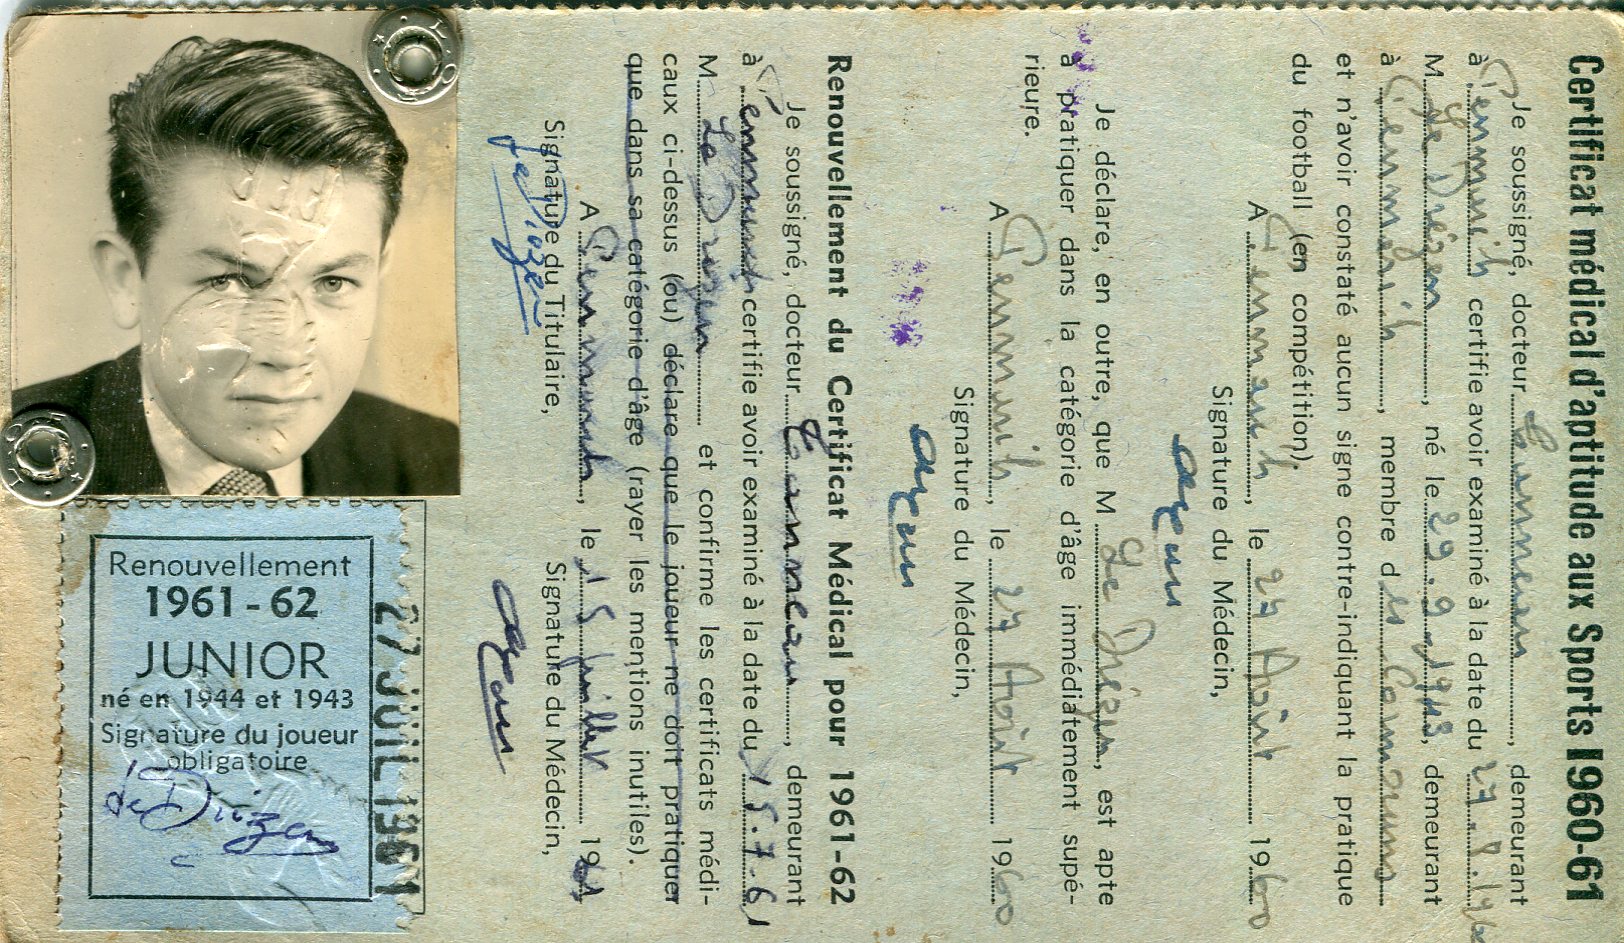 Certificat médical d'aptitude aux Sports 1960-61
Je soussigné, docteur, demeurant
à Penmarch certifie avoir examiné à la date du 27.8.1960
M. Le Drézen, né le 29.9.1943, demeurant
à Penmarch, membre des Cormorans
et n'avoir constaté aucun signe contre-indiquant la pratique
du football (en compétition).
A Penmarch, le 27 Août 1960
Signature du Médecin,
Je déclare, en outre, que M. Le Drézen, est apte
à pratiquer dans la catégorie d'âge immédiatement supé-
rieure.
A Penmarch, le 27 Août 1960
Signature du Médecin,
Renouvellement du Certificat Médical pour 1961-62
Je soussigné, docteur, demeurant
à Penmarch certifie avoir examiné à la date du 15.7.61
M. Le Drezen et confirme les certificats médi-
caux ci-dessus (ou) déclare que le joueur ne doit pratiquer
que dans sa catégorie d'âge (rayer les mentions inutiles).
A Penmarch, le 15 Juillet 1961
Signature du Titulaire, Signature du Médecin,
Le Drezen
Renouvellement
1961-62
JUNIOR
né en 1944 et 1943
Signature du joueur
obligatoire
Le Drezen
27 JUIL 1961